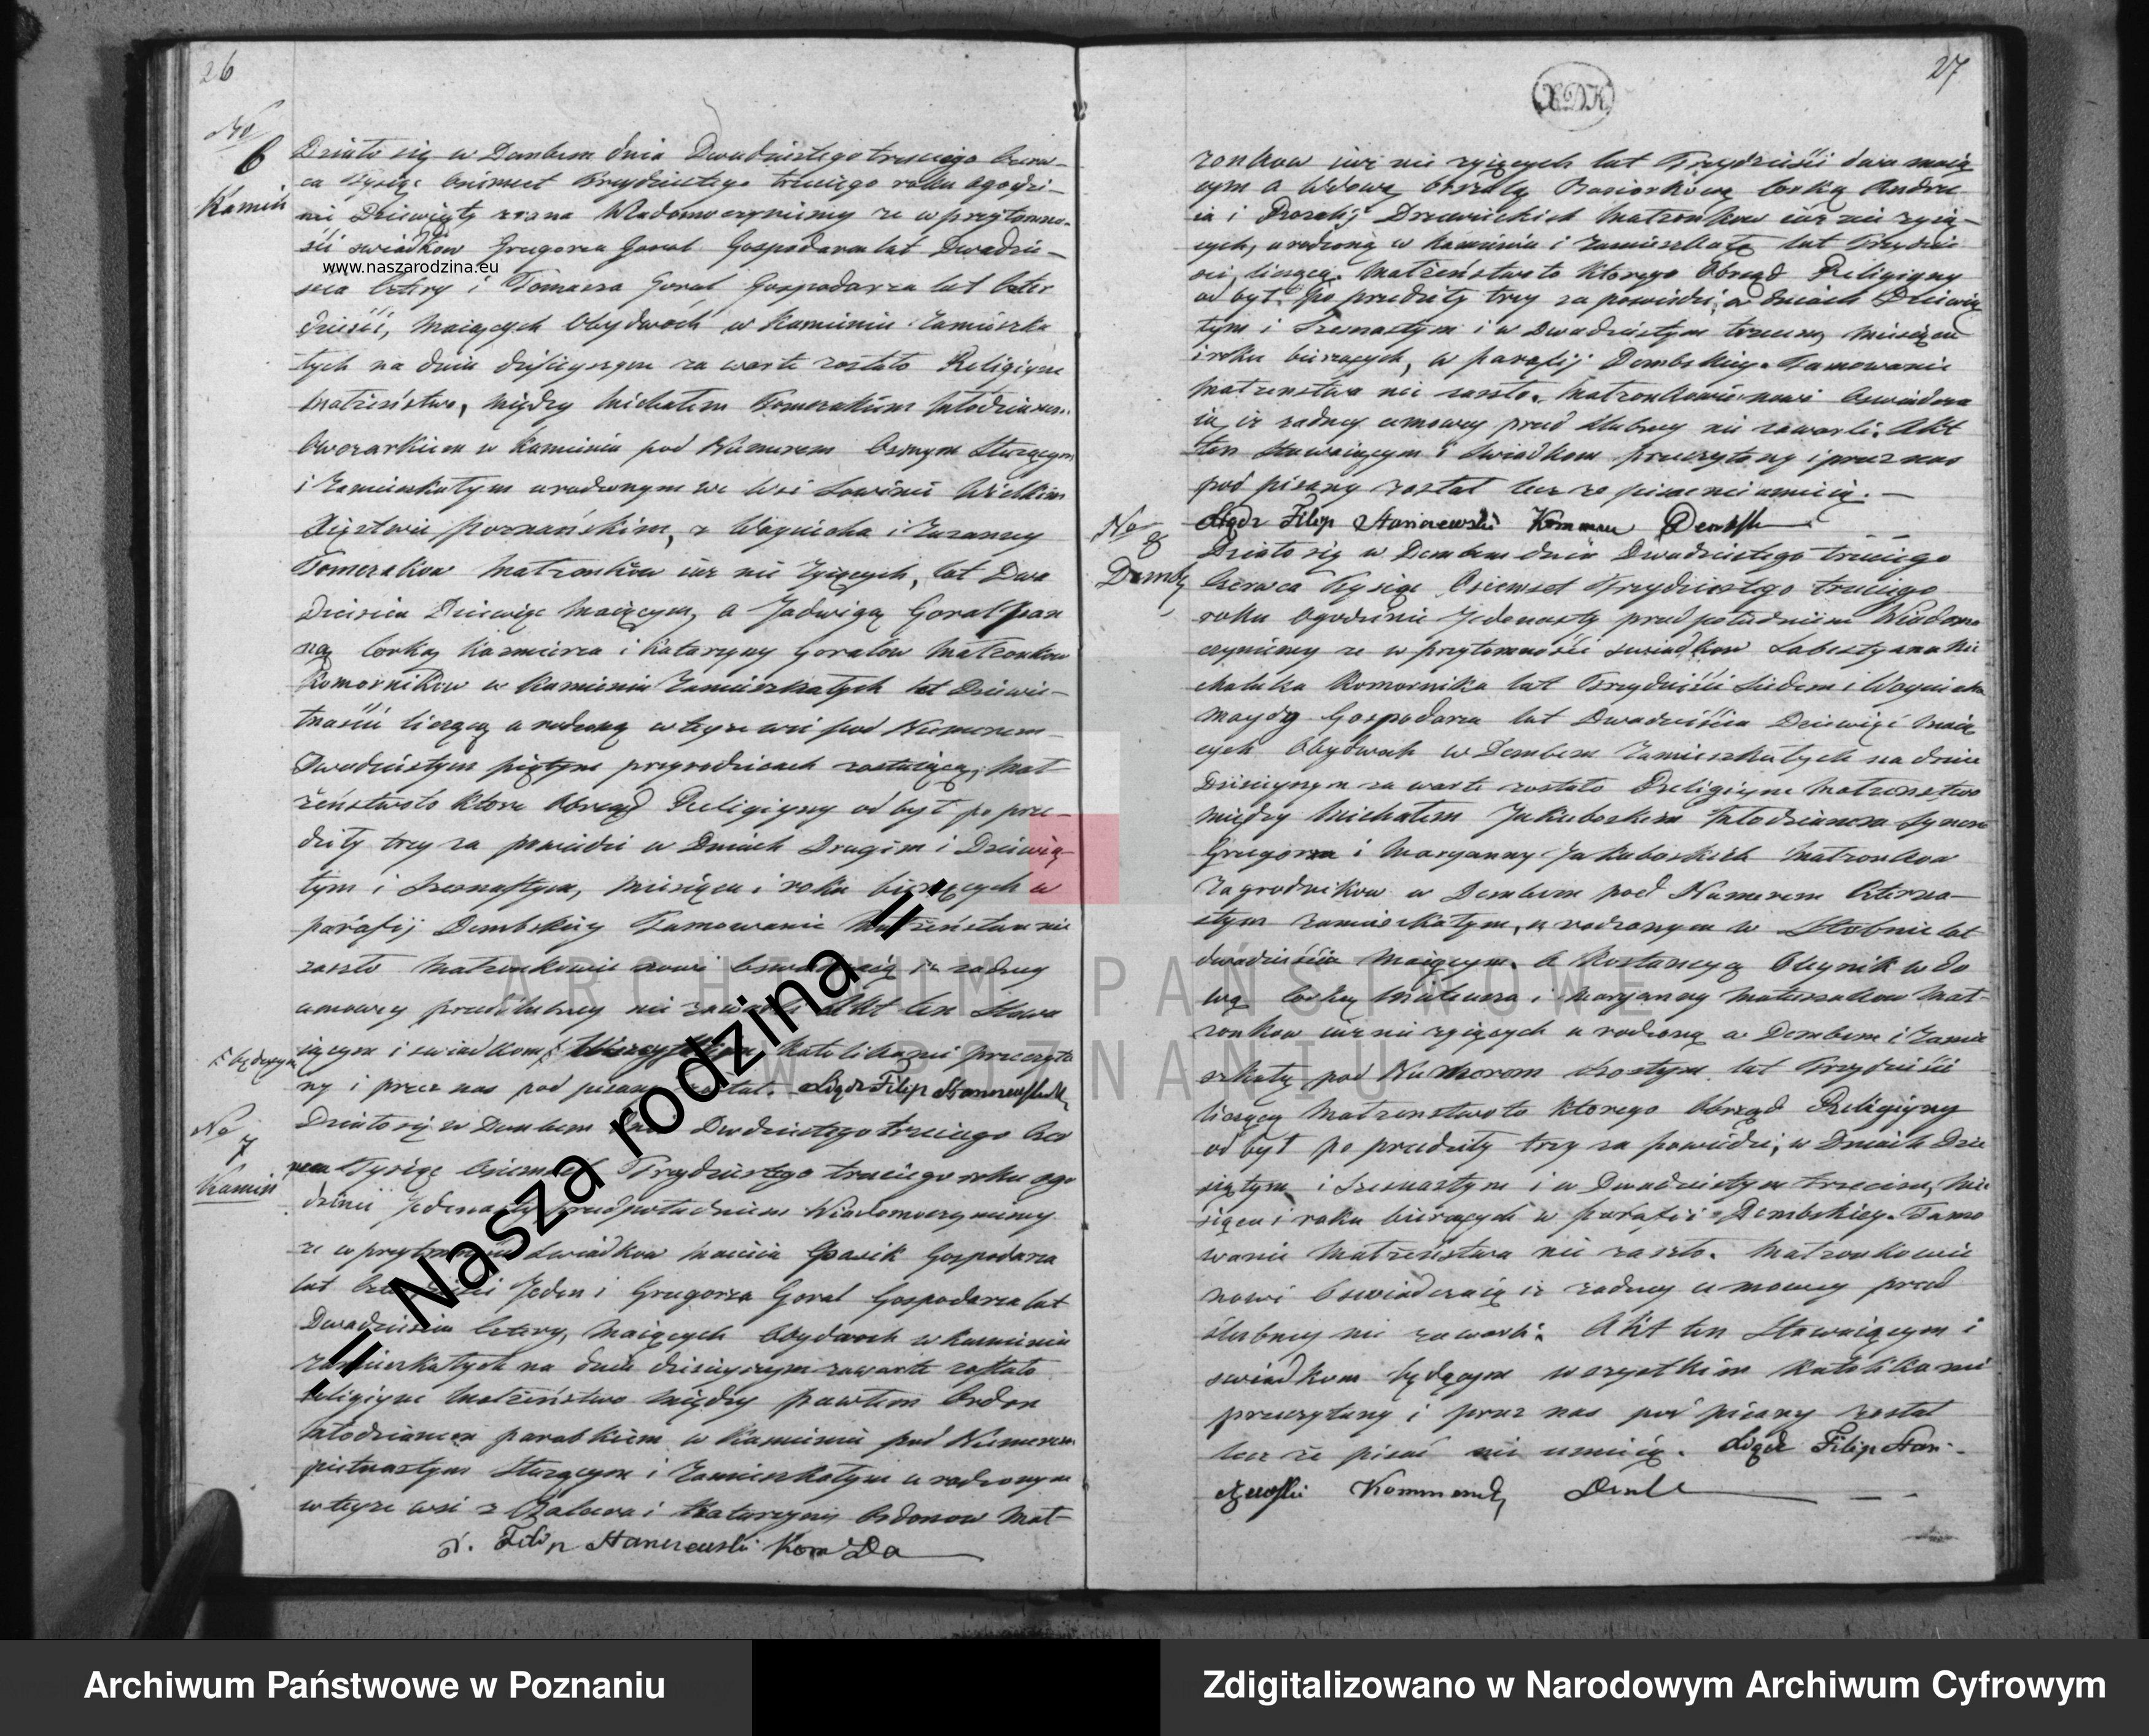 26
No
6
Kamień
Działo się w Dembem dnia Dwudziestego trzeciego Czerw-
ca Tysiąc Osimset Trzydziestego trzeciego roku o godzi-
nie Dziewięty zrana Wiadomo czyniemy ze w przytomno-
ści swiadków Grzegorza Goral Gospodarza lat Dwadzie-
www.naszarodzina.eu
scia Cztery i Tomasza Goral Gospodarza lat Czter
dzieści, Maiących Obydwoch w Kamieniu Zamieszka
łych na dniu dzisieyszym za warte zostało Religiyne
Małżeństwo, między Michałem Pomerakiem Młodzianem
Owczarkiem w Kamieniu pod Numerem Osmym Służącym
i Zamieszkałym urodzonym we Wsi Wielkim
Xięztwie Poznańskim, z Woyciecha i Zuzanny
Pomeraków Małzonków iuz nie Zyiących, lat Dwa
dziescia Dziewięc Maiącym, a Jadwigą Goral pan
ną Corką Kazmierza i Kataryny Goralów Małzonkow
Komorników w Kamieniu Zamieszkałych lat Dziewie-
tnaści liczącą urodzoną w teyze wsi pod Numerem
Dwudziestym piątym przy rodzicach zostaiącą; Mał-
żeństwo to ktore Obrząd Religiyny od był po prze-
dziły trzy za powiedzi w Dniach Drugim i Dziewią-
tym i Szesnastym, Miesiąca i roku bieżących w
parafij Dembskiey Tamowanie Małżeństwa nie
zaszło Małzonkowie nowi Oswiadczaią iz zadney
umowy przedślubney nie zawarli Akt ten Stawa
będącym
iącym i swiadkom Katolikami przeczyta
ny i przez nas pod pisany został. Xiądz Filip Staniszewski
No
7
Kamień
Działo się w Dembem Dnia Dwudziestego trzeciego Czer
wca Tysiąc Osiemset Trzydziestego trzeciego roku ogo
dzinie Jedenasty przed południem Wiadomo czyniemy
ze w przytomności Swiadkow Macieia Gospodarza
lat Czterdzieści Jeden i Grzegorza Goral Gospodarza lat
Dwadzieścia Cztery, Maiących Obydwoch w Kamieniu
Zamieszkałych na dniu dzisieyszym zawarte zostało
Religiyne Małżeństwo między Pawłem Ordon
Młodzianem parobkiem w Kamieniu pod Numerem
pietnastym Służącym i Zamieszkałym urodzonym
w teyze wsi z i Kataryny Ordonow Mał-
X. Filip Staniszewski Kom Da
27
XDK
zonkow iuz nie zyiących lat Trzydzieści dwa maią
cym a Wdową Corką Andrze
ia i Rozalij Drzewieckich Małzonkow iuz nie zyią-
cych, urodzoną w Kamieniu i Zamieszkałą lat Trzydzie
sci, liczącą. Małżeństwo to ktorego Obrząd Religiyny
od był. Po przedziły trzy za powiedzi, w dniach Dziewią
tym i Szesnastym i w Dwudziestym trzecim, Miesiąca
i roku bieżących, w parafij Dembskiey. Tamowanie
Małzenstwa nie zaszło. Małzonkowie nowi Oswiadcza
ią, iz zadney umowy przed slubney nie zawarli. Akt
ten Stawaiącym i Swiadkom przeczytany i przez nas
pod pisany został lecz ze pisac nie umieią. —
Xiądz Filip Staniszewski
No
8
Dembe
Działo się w Dembem dnia Dwudziestego trzeciego
Czerwca Tysiąc Osiemset Trzydziestego trzeciego
roku Ogodzinie Jedenasty przed południem Wiadomo
czyniemy ze w przytomności swiadkow Sobestyana Mi
chalika Komornika lat Trzydzieści Siedem i Woyciecha
Maydy Gospodarza lat Dwadzieścia Dziewięć Maią
cych Obydwoch w Dembem Zamieszkałych na dniu
Dzisieyszym za warte zostało Religiyne Małzenstwo
między Michałem Jakuboskim Młodzianem Synem
Grzegorza i Maryanny Jakuboskich Małzonkow
Zagrodnikow w Dembem pod Numerem Czterna-
stym zamieszkałym, urodzonym w Słobnie lat
dwadzieścia Maiącym. a Kostancyą Oleynik wdo
wą Corką i Maryanny Mateusakow Mał-
zonkow iuz nie zyiących urodzoną w Dembem i Zamie
szkałą pod Numerem szostym lat Trzydzieści
liczącą Małzenstwo to ktorego Obrząd Religiyny
od był po przedziły trzy za powiedzi, w Dniach Dzie
siątym i Szesnastym i w Dwudziestym trzecim, Mie
siąca i roku bieżących w parafii Dembskiey. Tamo
wanie Małżeństwa nie zaszło. Małzonkowie
nowi Oswiadczaią iz zadney umowy przed
slubney nie zawarli. Akt ten Stawaiącym i
swiadkom będącym wszystkim Katolikami
przeczytany i przez nas pod pisany został
lecz że pisać nie umieią. Xiądz Filip Stani-
szewski Kommend
ARCHIWUM PAŃSTWOWE
W POZNANIU
.:: Nasza rodzina ::.
Archiwum Państwowe w Poznaniu
Zdigitalizowano w Narodowym Archiwum Cyfrowym